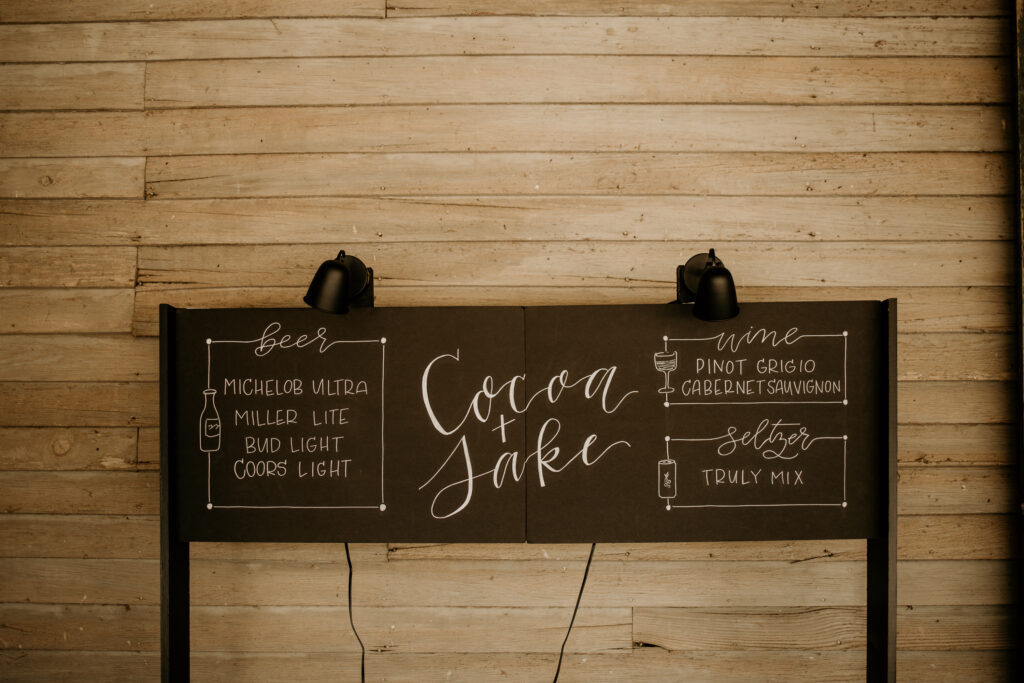 beer
MICHELOB ULTRA
MILLER LITE
BUD LIGHT
COORS LIGHT
Cocoa
+
Jake
wine
PINOT GRIGIO
CABERNET SAUVIGNON
seltzer
TRULY MIX